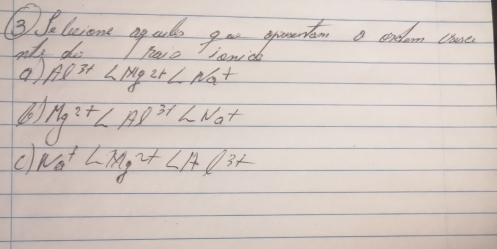 3) Selecione aquelas que apresentam a ordem cresce
nte do raio ionico
a) Al 3+ < Mg 2+ < Na+
b) Mg 2+ < Al 3+ < Na+
c) Na+ < Mg 2+ < Al 3+